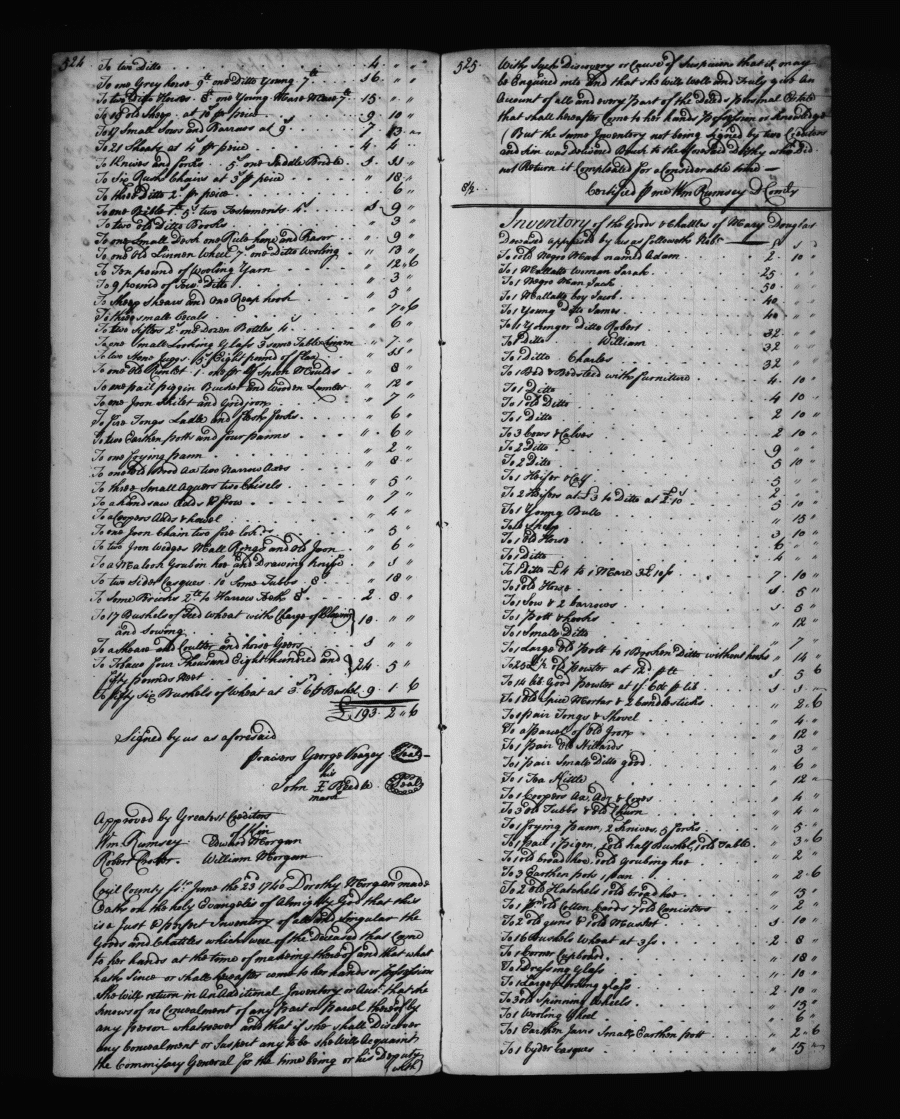 524
To two Ditto 4 " "
To one Grey horse 9£ one Ditto Young 7£ 16 " "
To two Ditto Horses 8£ one Young Mare 7£ 15 " "
To 18 old Sheep at 10 p price 9 10 "
To 17 Small Sows and Barrows at 9s 7 13 "
To 21 Shoats at 4s p price 4 4 "
To Knives and forks 5s one Saddle Bridle 1 11 "
To Six Rush Chairs at 3s p price " 18 "
To three Ditto 2s p price " 6 "
To one Bible 5s two Testaments 4s " 9 "
To two old Ditto Books " 3 "
To one Small Desk one Rule hone and Rasor " 9 "
To one Old Linnen Wheel 7s one Ditto Wooling " 13 "
To Ten pound of Wooling Yarn " 12 6
To 9 pound of Tow Ditto " 3 "
To Sheep Shears and one Reap hook " 3 "
To three small Meals " 7 6
To two Sifters 2s one Dozen Bottles 4s " 6 "
To one Small Looking Glass 3 some Table Linnen " 7 "
To two Stone Juggs eight pound of Flax " 11 "
To one old Rundlet 1s one pr of Spoon Moulds " 8 "
To one pail piggin Bucket and Wooden Lumber " 12 "
To one Iron Skilet and Gridiron " 7 "
To fire Tongs Ladle and flesh forks " 6 "
To two Earthen pots and four panns " 6 "
To one frying pann " 2 "
To one old Broad Ax two Narrow Axes " 8 "
To three Small Aguers two Chisels " 5 "
To a handsaw Adds & frow " 7 "
To a Coopers Adds & howel " 4 "
To one Iron Chain two fire Locks " 5 "
To two Iron Wedges Mall Rings and Old Iron " 6 "
To a Matock Grubin hoe and Drawing Knife " 5 "
To two Sider Casques 10 Some Tubbs 8s " 18 "
To Some Bricks 2£ to Harrow Teeth 8s 2 8 "
To 17 Bushels of Seed Wheat with Charge of Plowing
and Sowing 10 " "
To a Share and Coulter and horse Geers 1 " "
To Tobaco four Thousand Eight hundred and
fifty pounds Nett 24 5 "
To fifty Six Bushels of Wheat at 3s 6d Bushl 9 1 6
£193 2 6
Signed by us as aforesaid
praisers George Veazey Seal
his
John Beedle Seal
mark
Approved by Greatest Creditors
Wm Rumsey Edward Morgan
Kin
Robert Porter William Morgan
Cecil County ss. June the 23d 1740 Dorothy Morgan made
Oath on the holy Evangels of Almighty God that this
is a Just & perfect Inventory of all and Singular the
Goods and Chattles which were of the Deceased that came
to her hands at the time of makeing thereof and that what
hath Since or Shall hereafter come to her hands or possession
She will return in An Additional Inventory or Acct that she
knows of no Concealment of any Part or Parcel thereof by
any person whatsoever and that if she Shall Discover
any Concealment or Suspect any to be she Will Acquaint
the Commissary General for the time being or his Deputy
With
525
With Such Discovery or Cause of Suspicion that it may
be Enquired into and that she will Well and Truly give An
Account of all and every Part of the Deceds personal Estate
that Shall hereafter Come to her hands possession or knowledge
(But the Same Inventory not being Signed by two Creditors
and kin was delivered Back to the aforesaid Dorothy who did
not Return it Compleated for a Considerable time
Certified p me Wm Rumsey D Comry
8/2
Inventory of the Goods & Chattles of Mary Douglas
Deceased apprised by us as followeth Vizt £ s d
To 1 old Negro Man named Adam 2 10 "
To 1 Mallatto woman Sarah 25 " "
To 1 Negro Man Jack 50 " "
To 1 Mallatto boy Jacob 40 " "
To 1 Young Ditto James 40 " "
To 1 Younger Ditto Robert 32 " "
To 1 Ditto William 32 " "
To 1 Ditto Charles 32 " "
To 1 Bed & Bedsteed with furniture 4 10 "
To 1 Ditto 4 10 "
To 1 old Ditto 2 10 "
To 1 Ditto 2 10 "
To 3 Cows & Calves 9 " "
To 2 Ditto 5 10 "
To 2 Ditto 5 " "
To 1 Heifer & Calf 2 " "
To 2 Heifers at £3 to Ditto at £ 10 5 10 "
To 1 Young Bull " 15 "
To Sheep 3 10 "
To 1 old Horse 6 " "
To 1 Ditto 4 " "
To 1 Ditto £4 to 1 Mare 3£ 10s 7 10 "
To 1 old Horse 1 5 "
To 1 Sow & 2 barrows 1 5 "
To 1 Pott & hooks " 12 "
To 1 Small Ditto " 7 "
To 1 Large old Pott to 1 Broken Ditto without hooks " 14 "
To 25 lb old Pewter at 12d p lb 1 5 6
To 14 lb Good Pewter at 1s 6d p lb 1 1 "
To 1 old Spice Mortar & 2 Candlesticks " 2 6
To 1 pair Tongs & Shovel " 4 "
To a parcel of old Iron " 12 "
To 1 pair old Stilards " 3 "
To 1 pair Small Ditto good " 6 "
To 1 Tea Kittle " 12 "
To 1 Coopers Ax, Adz & Crows " 4 "
To 3 old Tubbs & old Churn " 4 "
To 1 frying Pann, 2 Knives, 5 forks " 5 "
To 1 pail 1 Pigen, 1 old half Bushel, 1 old Table " 3 6
To 1 old broad hoe, 1 old grubing hoe " 2 "
To 3 Earthen pots 1 pan " 2 6
To 2 old Hatchels 1 old broad hoe " 15 "
To 1 pr old Cotton Cards 7 old Canisters " 2 "
To 2 old guns & 1 old Musket 1 10 "
To 16 Bushels Wheat at 3s 2 8 "
To 1 Corner Cupboard " 18 "
To 1 Dressing Glass " 10 "
To 1 Large Looking Glass 2 10 "
To 3 old Spinning Wheels " 15 "
To 1 Wooling Wheel " 6 "
To 1 Earthen Jarr 1 Small Earthen pott " 2 6
To 1 Cyder Casques " 15 "